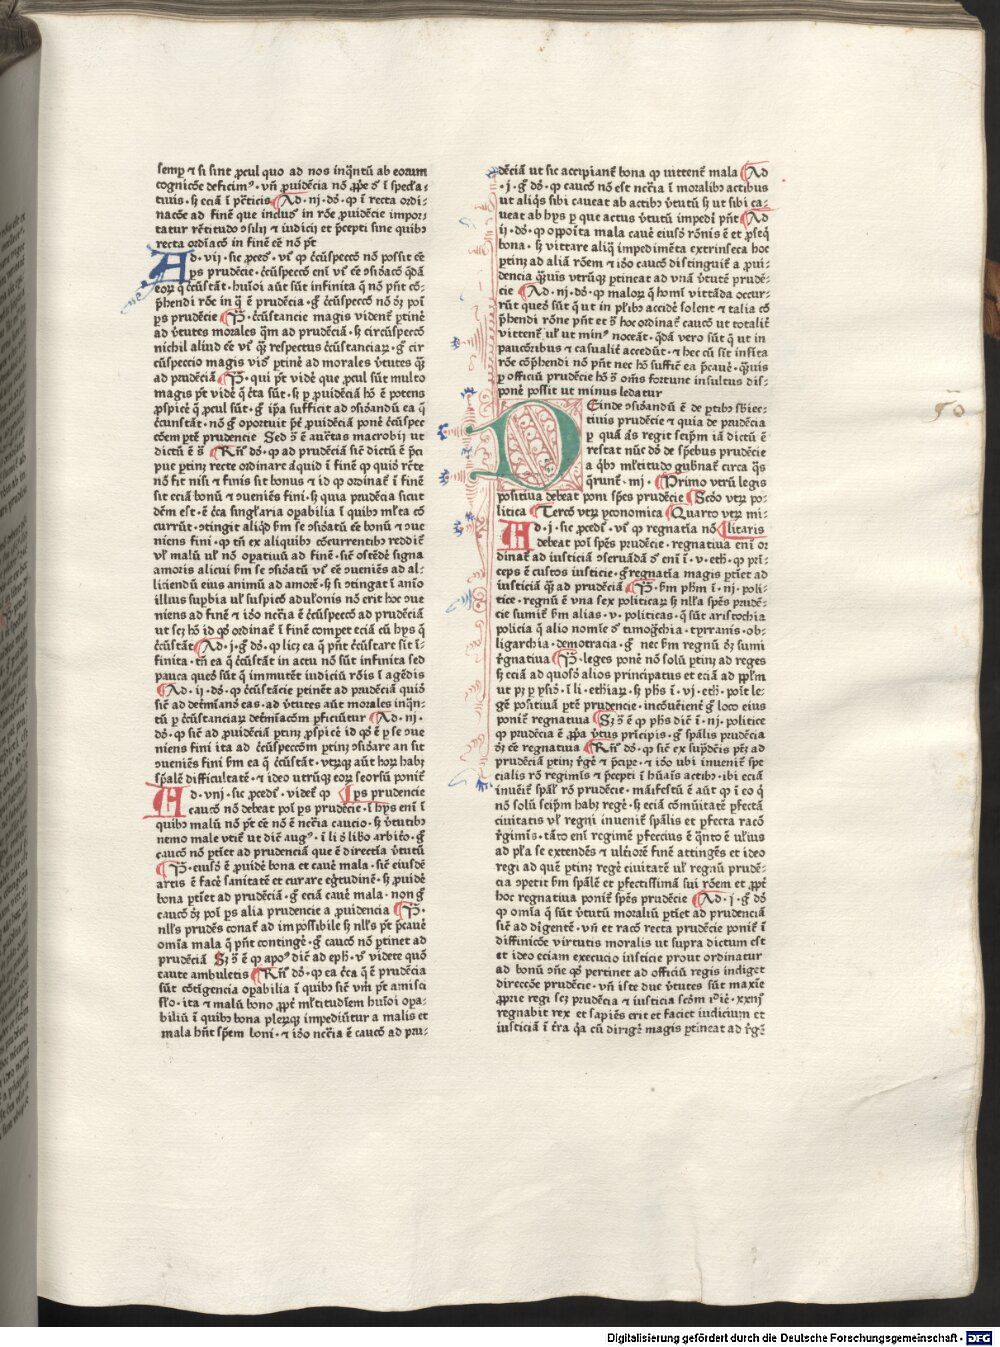 semꝑ ⁊ si sint ꝓcul quo ad nos inq̈ntū ab eorum
cognicōe deficimꝰ · vñ ꝓuidēcia nō ꝓp̄e ē ī specła⸗
tiuis · ꝫ ecīā ī p̄cticis Ad · nj · dō· ꝙ ī recta ordi⸗
nacōe ad finē que includiꝰ in rōe ꝓuidēcie impor⸗
tatur rētitudo ɔsilij ⁊ iudicij et p̄cepti sine quibꝫ
recta ordīacō in finē cē nō p̄t
Ad · vij · sic ꝓcedꝰ · vr̄ ꝙ c̄cūspeccō nō possit cē
ps prudēcie · c̄cūspeccō enī vr̄ cē ɔsid̄acō q̄dā
eoꝝ q̄ c̄cūstāt · huīoi aūt sūt infinita q̄ nō pn̄t cō⸗
p̄hendi rōe in q̄ ē prudēcia · g̊ c̄cūspeccō nō dꝫ poī
ps prudēcie P̄· c̄cūstancie magis vident̄ ꝑtinē
ad v̄tutes morales q̄m ad prudēciā · ꝫ circūspeccō
nichil aliud cē vr̄ q̄ respectus c̄cūstanciaꝝ · g̊ cir
cūspeccio magis vid̄ ꝑtinē ad morales v̄tutes q̄
ad prudēciā P̄· qui p̄t vidē que ꝓcul sūt multo
magis p̄t vidē q̄ c̄ta sūt · ꝫ ꝑ ꝓuidēciā hō ē potens
ꝓspicē q̄ ꝓcul sūt · g̊ ip̄a sufficit ad ɔsid̄andū ea q̄
c̄cunstāt · nō g̊ oportuit p̄t ꝓuidēciā ponē c̄cūspec
cōem ꝑtē prudencie Sed ɔ̄ ē auct̄tas macrobij ut
dictū ē s̄ Rn̄ dō· ꝙ ad prudēciā sic̄ dictū ē p̄ci
pue ꝑtinꝫ recte ordinare aliquid ī finē ꝙ quidē rēte
nō fit nisi ⁊ finis sit bonus ⁊ id ꝙ ordinat̄ ī finē
sit eciā bonū ⁊ ɔueniēs fini · ꝫ quia prudēcia sicut
dēm est · ē c̄ca singl̄aria opabilia ī quibꝫ ml̄ta cō
currūt · ɔtingit aliqd̄ ẜm se ɔsid̄atū cē bonū ⁊ ɔue
niens fini · ꝙ tn̄ ex aliquibꝫ cōcurrentibꝫ reddit̄
vl̄ malū ul̄ nō opatiuū ad finē · sic̄ ostēdē signa
amoris alicui ẜm se ɔsid̄atū vr̄ cē ɔueniēs ad al⸗
liciendū eius animū ad amorē · ꝫ si ɔtingat ī anīo
illius suꝑbia ul̄ suspicō adul̄onis nō erit hoc ɔue
niens ad finē ⁊ iđo nc̄cria ē c̄cūspeccō ad prudēciā
ut scꝫ hō id qđ ordinat̄ ī finē compet eciā cū hijs q̄
c̄cūstāt Ad · j · g̊ dō· ꝙ licꝫ ea q̄ pn̄t c̄cūstare sit ī⸗
finita · tn̄ ea q̄ c̄cūstāt in actu nō sūt infinita sed
pauca quedā sūt q̄ immutēt iudiciū rōis ī agēdis
Ad · ij · dō· ꝙ c̄cūstācie ꝑtinēt ad prudēciā quidē
sic̄ ad det̄mīandas · ad v̄tutes aūt morales inq̈n⸗
tū ꝑ c̄cūstanciaꝝ det̄mīacōm ꝑficiūtur Ad · nj ·
dō· ꝙ sic̄ ad ꝓuidēciā ꝑtinꝫ ꝓspicē id qđ ē ꝑ se ɔue
niens fini ita ad c̄cūspeccōm ꝑtinꝫ ɔsid̄are an sit
ɔueniēs fini ẜm ea q̄ c̄cūstāt · vtrꝙ aūt hoꝝ habꝫ
sp̄alē difficultatē · ⁊ ideo utrūꝙ eoꝝ seorsū ponit̄
Ad · vnj · sic ꝓcedꝰ · videt̄ ꝙ ps prudencie
caucō nō debeat poī ps prudēcie · ī hijs enī ī
quibꝫ malū nō p̄t cē nō ē nc̄cria caucio · ꝫ v̄tutibꝫ
nemo male vtit̄ ut dic̄ augꝰ · ī li d̄ libo arbit̄o · g̊
caucō nō ꝑtīet ad prudenciā que ē directīa v̄tutū
P̄· eiusdē ē ꝓuidē bona et cauē mala · sic̄ eiusdē
artis ē facē sanitatē et curare eg̊tudinē · ꝫ ꝓuidē
bona ꝑtīet ad prudēciā · g̊ eciā cauē mala · non g̊
caucō dꝫ poī ps alia prudencie a ꝓuidencia P̄·
nlls prudēs conat̄ ad impossibile ꝫ nlls p̄t p̄cauē
omīa mala q̄ pn̄t contingē · g̊ caucō nō ꝑtinet ad
prudēciā Sꝫ ɔ̄ ē ꝙ apoꝰ dic̄ ad eph̄ · v̄ videte quō
caute ambuletis Rn̄ dō· ꝙ ea c̄ca q̄ ē prudēcia
sūt cōtīgencia opabilia ī quibꝫ sic̄ vm̄ p̄t amisci
fl̄o · ita ⁊ malū bono ꝓpt̄ ml̄titudīem huīoi opa⸗
biliū ī quibꝫ bona pleꝝꝙ impediūtur a malis et
mala hn̄t sp̄em boni · ⁊ iđo nc̄cria ē caucō ad pru⸗
dēciā ut sic accipiant̄ bona ꝙ uittent̄ mala Ad
· j · g̊ dō· ꝙ caucō nō est nc̄cria ī moralibꝫ actibus
ut aliqs sibi caueat ab actibꝫ v̄tutū ꝫ ut sibi ca⸗
ueat ab hijs ꝑ que actus v̄tutū impedī pn̄t Ad
ij · dō· ꝙ opposita mala cauē eiusdē rōnis ē et ꝓseq̄
bona · ꝫ vittare aliq̄ impedimēta extrinseca hoc
ꝑtinꝫ ad aliā rōem ⁊ iđo caucō distinguit̄ a ꝓui⸗
dencia q̄uis vtrūꝙ ꝑtineat ad vnā v̄tutē prudē⸗
cie Ad · nj · dō· ꝙ maloꝝ q̄ homī vittāda occur⸗
rūt quedā sūt q̄ ut in pl̄ibꝫ accidē solent ⁊ talia cō
p̄hendi rōne pn̄t et ɔ̄ hoc ordinat̄ caucō ut totalit̄
vittent̄ ul̄ ut minꝰ noceāt · q̄dā vero sūt q̄ ut in
paucōribus ⁊ casualit̄ accedūt · ⁊ hec cū sīt infīta
rōe cōp̄hendi nō pn̄t nec hō suffic̄ ea p̄cauē · q̄uis
ꝑ officiū prudēcie hō ɔ̄ oms̄ fortune insultus dis⸗
ponē possit ut minus ledatur
DEinde ɔsid̄andū ē de ꝑtibꝫ sb̄iec⸗
tiuis prudēcie ⁊ quia de prudēcia
ꝑ quā aliquis regit seip̄m iā dictū ē
restat nūc dō de sp̄ebus prudēcie
a qbꝫ ml̄titudo gub̄nat̄ circa q̄s
q̄runt̄ · nij · Primo vtrū legis
positiua debeat poni sp̄es prudēcie Scđo vtꝝ po⸗
litica Tercō vtꝝ yconomica Quarto vtꝝ mi⸗
Ad · j · sic ꝓcedꝰ · vr̄ ꝙ regnatīa nō litaris
debeat poī sp̄es prudēcie · regnatiua enī or
dinat̄ ad iusticiā ɔseruādā dꝰ enī ī · v · eth̄ · ꝙ prī⸗
ceps ē custos iusticie · g̊ regnatīa magis ꝑtiet ad
iusticiā q̄ ad prudēciā P̄· ẜm ph̄m ī · nj · poli⸗
tice · regnū ē vna sex politicaꝝ ꝫ nll̄a sp̄es prudē⸗
cie sumit̄ ẜm alias · v · politicas · q̄ sūt aristochia
policia q̄ alio nomīe dꝰ timoḡchia · tyrranis · ob⸗
ligarchia · democracia · g̊ nec ẜm regnū dꝫ sumi
r̄gnatiua P̄· leges ponē nō solū ꝑtinꝫ ad reges
ꝫ eciā ad quosd̄ alios principatus et eciā ad ppl̄m
ut pꝫ ꝑ ysid̄ · ī li · ethiaꝝ · ꝫ ph̄s ī · vj · eth̄ · poīt le⸗
gē positiuā ꝑtē prudencie · incōuēient̄ g̊ loco eius
ponit̄ regnatiua Sꝫ ɔ̄ ē ꝙ ph̄s dic̄ ī · nj · politice
ꝙ prudēcia ē ꝓp̄a v̄tus prīcipis · g̊ sp̄alis prudēcia
dꝫ cē regnatiua Rn̄ dō· ꝙ sic̄ ex sup̄dcīs pꝫ ad
prudēciā ꝑtinꝫ r̄gē ⁊ p̄cipē · ⁊ iđo ubi inuenit̄ spe
cialis rō regimīs ⁊ p̄cepti ī hūaīs actibꝫ · ibi eciā
inuēit̄ sp̄al̄ rō prudēcie · māifestū ē aūt ꝙ ī eo q̄
nō solū seip̄m habꝫ regē · ꝫ eciā cōmūitatē ꝑfectā
ciuitatis vl̄ regni inuenit̄ sp̄alis et ꝑfecta racō
r̄gimīs · tāto enī regimē ꝑfeccius ē q̄nto ē ul̄ius
ad pl̄a se extendēs ⁊ ul̄tiorē finē attingēs et ideo
regi ad quē ꝑtinꝫ regē ciuitatē ul̄ regnū prudē⸗
cia ɔpetit ẜm sp̄alē et ꝑfectissimā sui rōem et ꝓpt̄
hoc regnatiua ponit̄ sp̄es prudēcie Ad · j · g̊ dō
ꝙ omīa q̄ sūt v̄tutū moraliū ꝑtīet ad prudenciā
sic̄ ad dīgentē · vñ et racō recta prudēcie ponit̄ ī
diffinicōe virtutis moralis ut supra dictum est
et ideo eciam execucio iusticie prout ordinatur
ad bonū ɔe qđ pertinet ad officiū regis indiget
direccōe prudēcie · vñ iste due v̄tutes sūt maxīe
ꝓprie regi scꝫ prudēcia ⁊ iusticia scđm ieꝰ · xxnjꝰ
regnabit rex et sapiēs erit et faciet iudicium et
iusticiā ī t̄ra q̄a cū dirigē magis ꝑtineat ad r̄gē
50
Digitalisierung gefördert durch die Deutsche Forschungsgemeinschaft - DFG